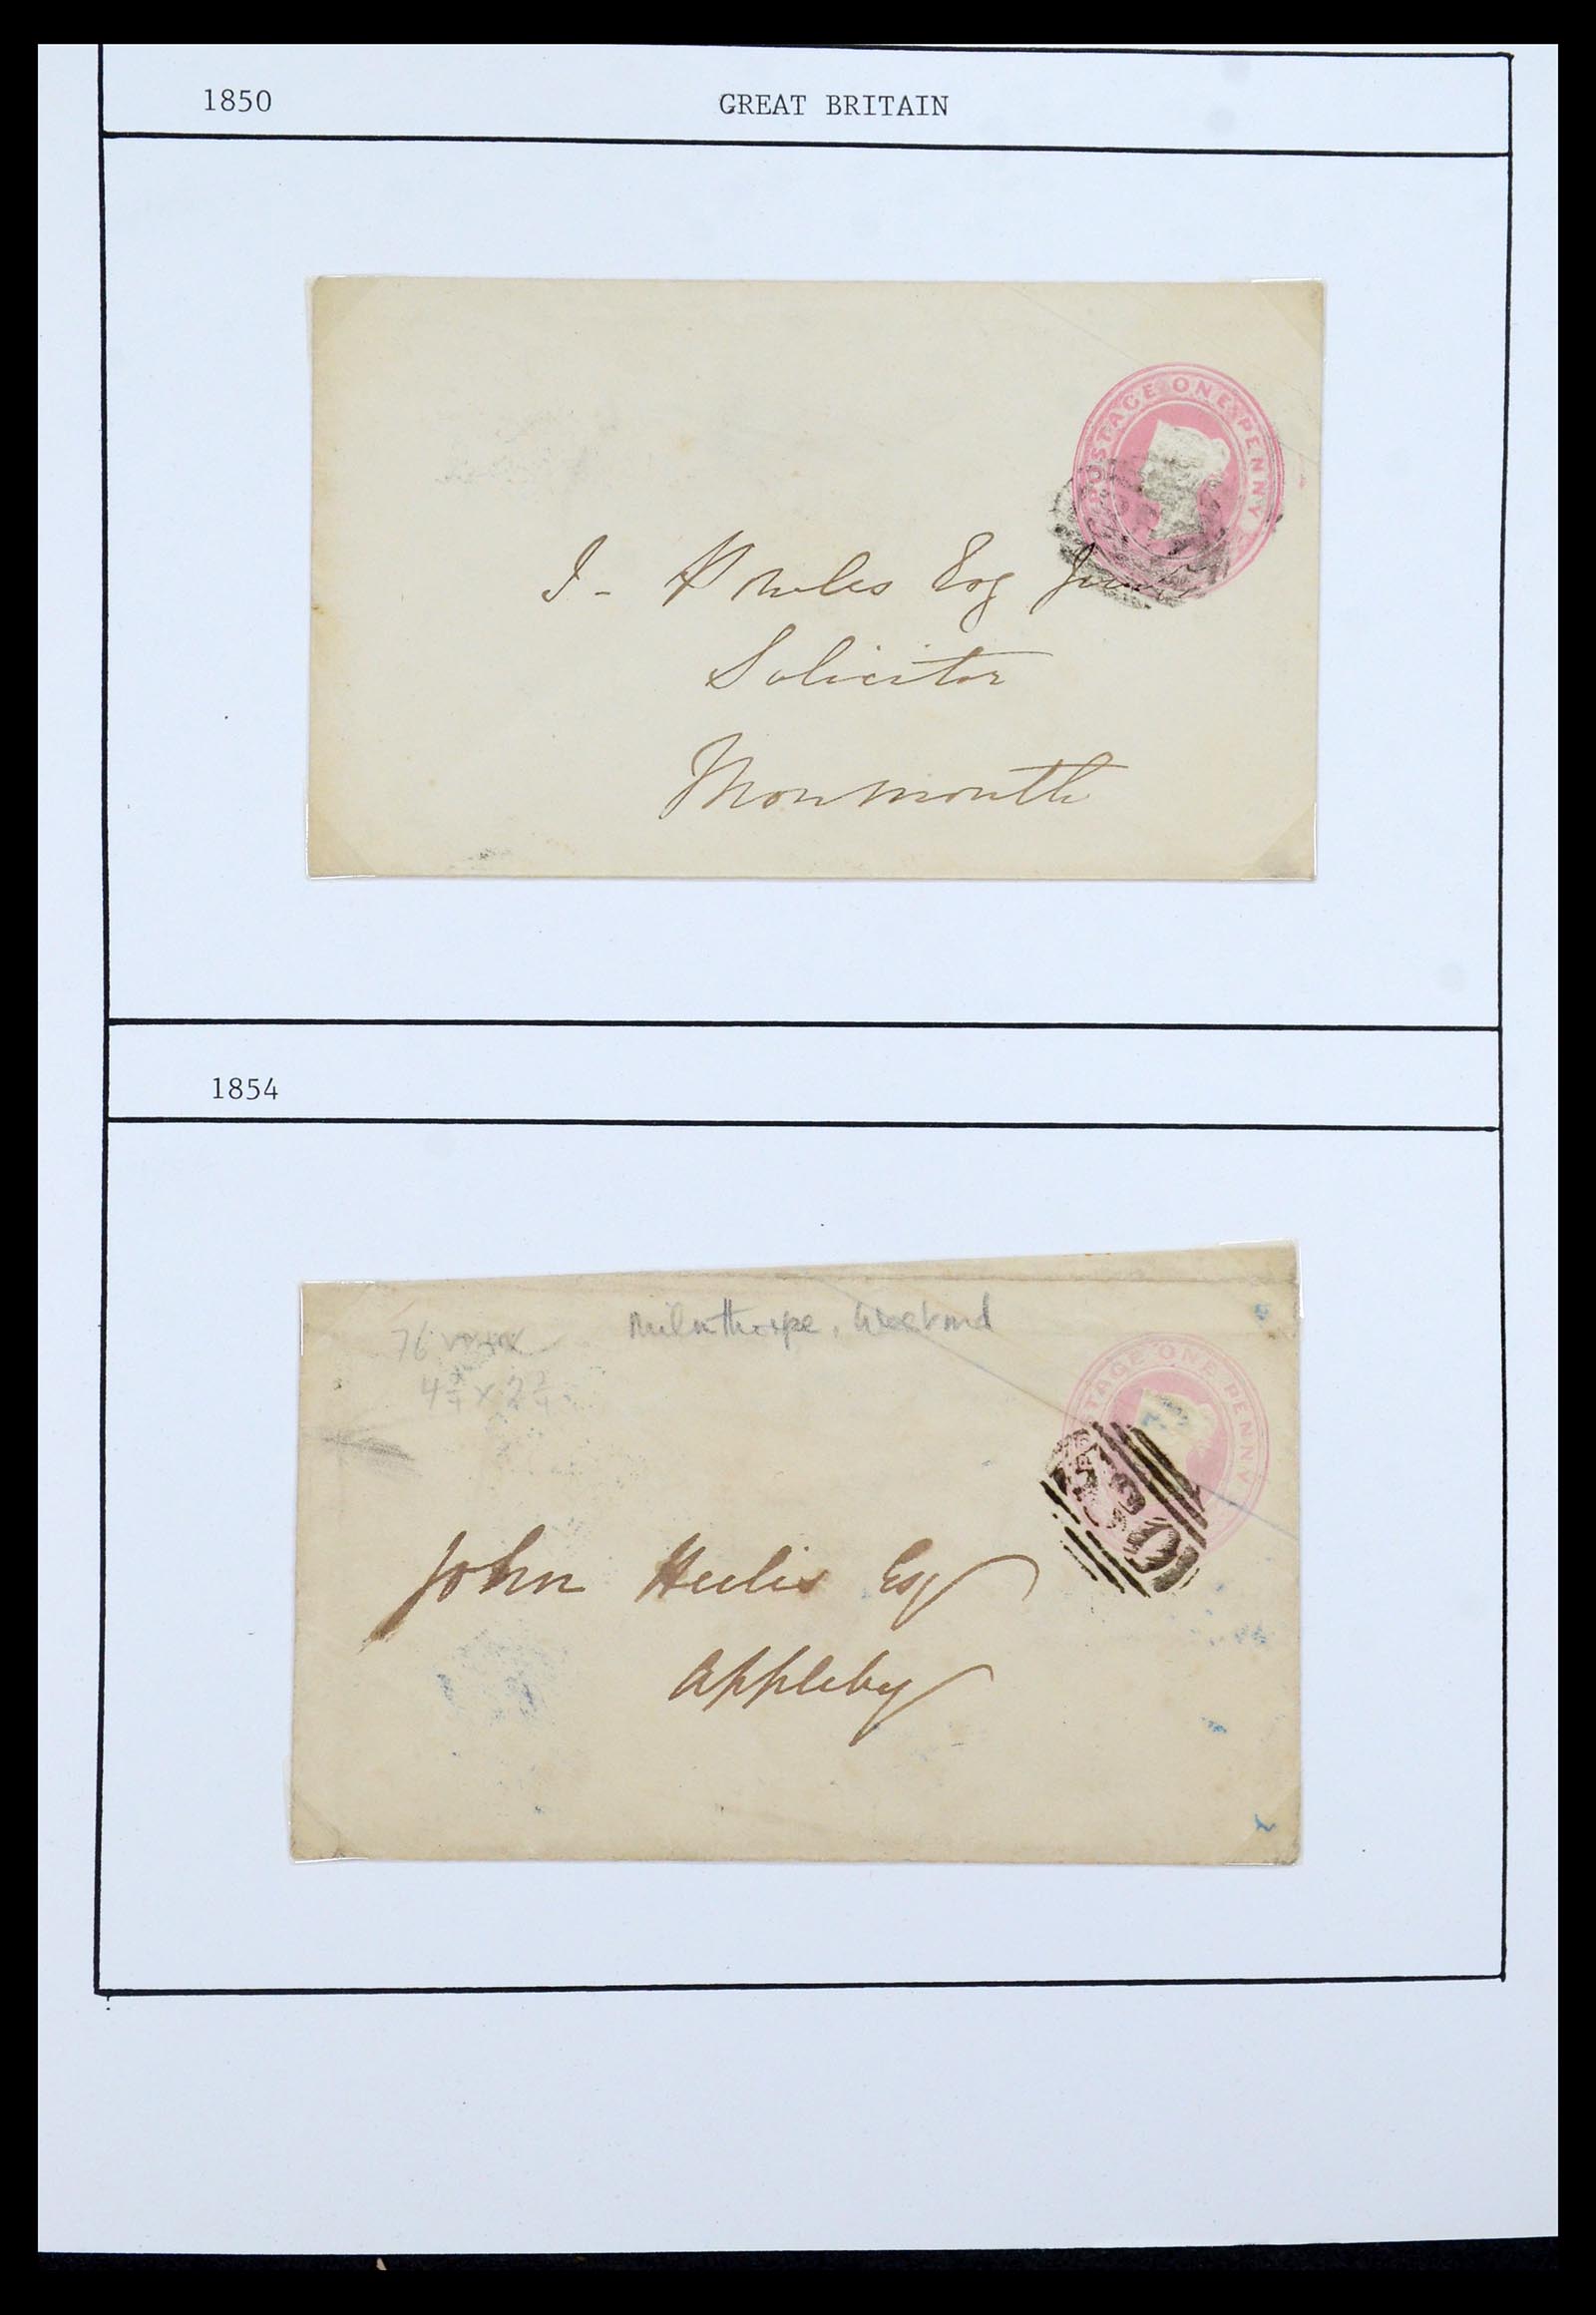 1850 GREAT BRITAIN
POSTAGE ONE PENNY
Esq
Solicitor
Monmouth
1854
Milnthorpe,
4 x 2
POSTAGE ONE PENNY
John Heelis Esq
Appleby